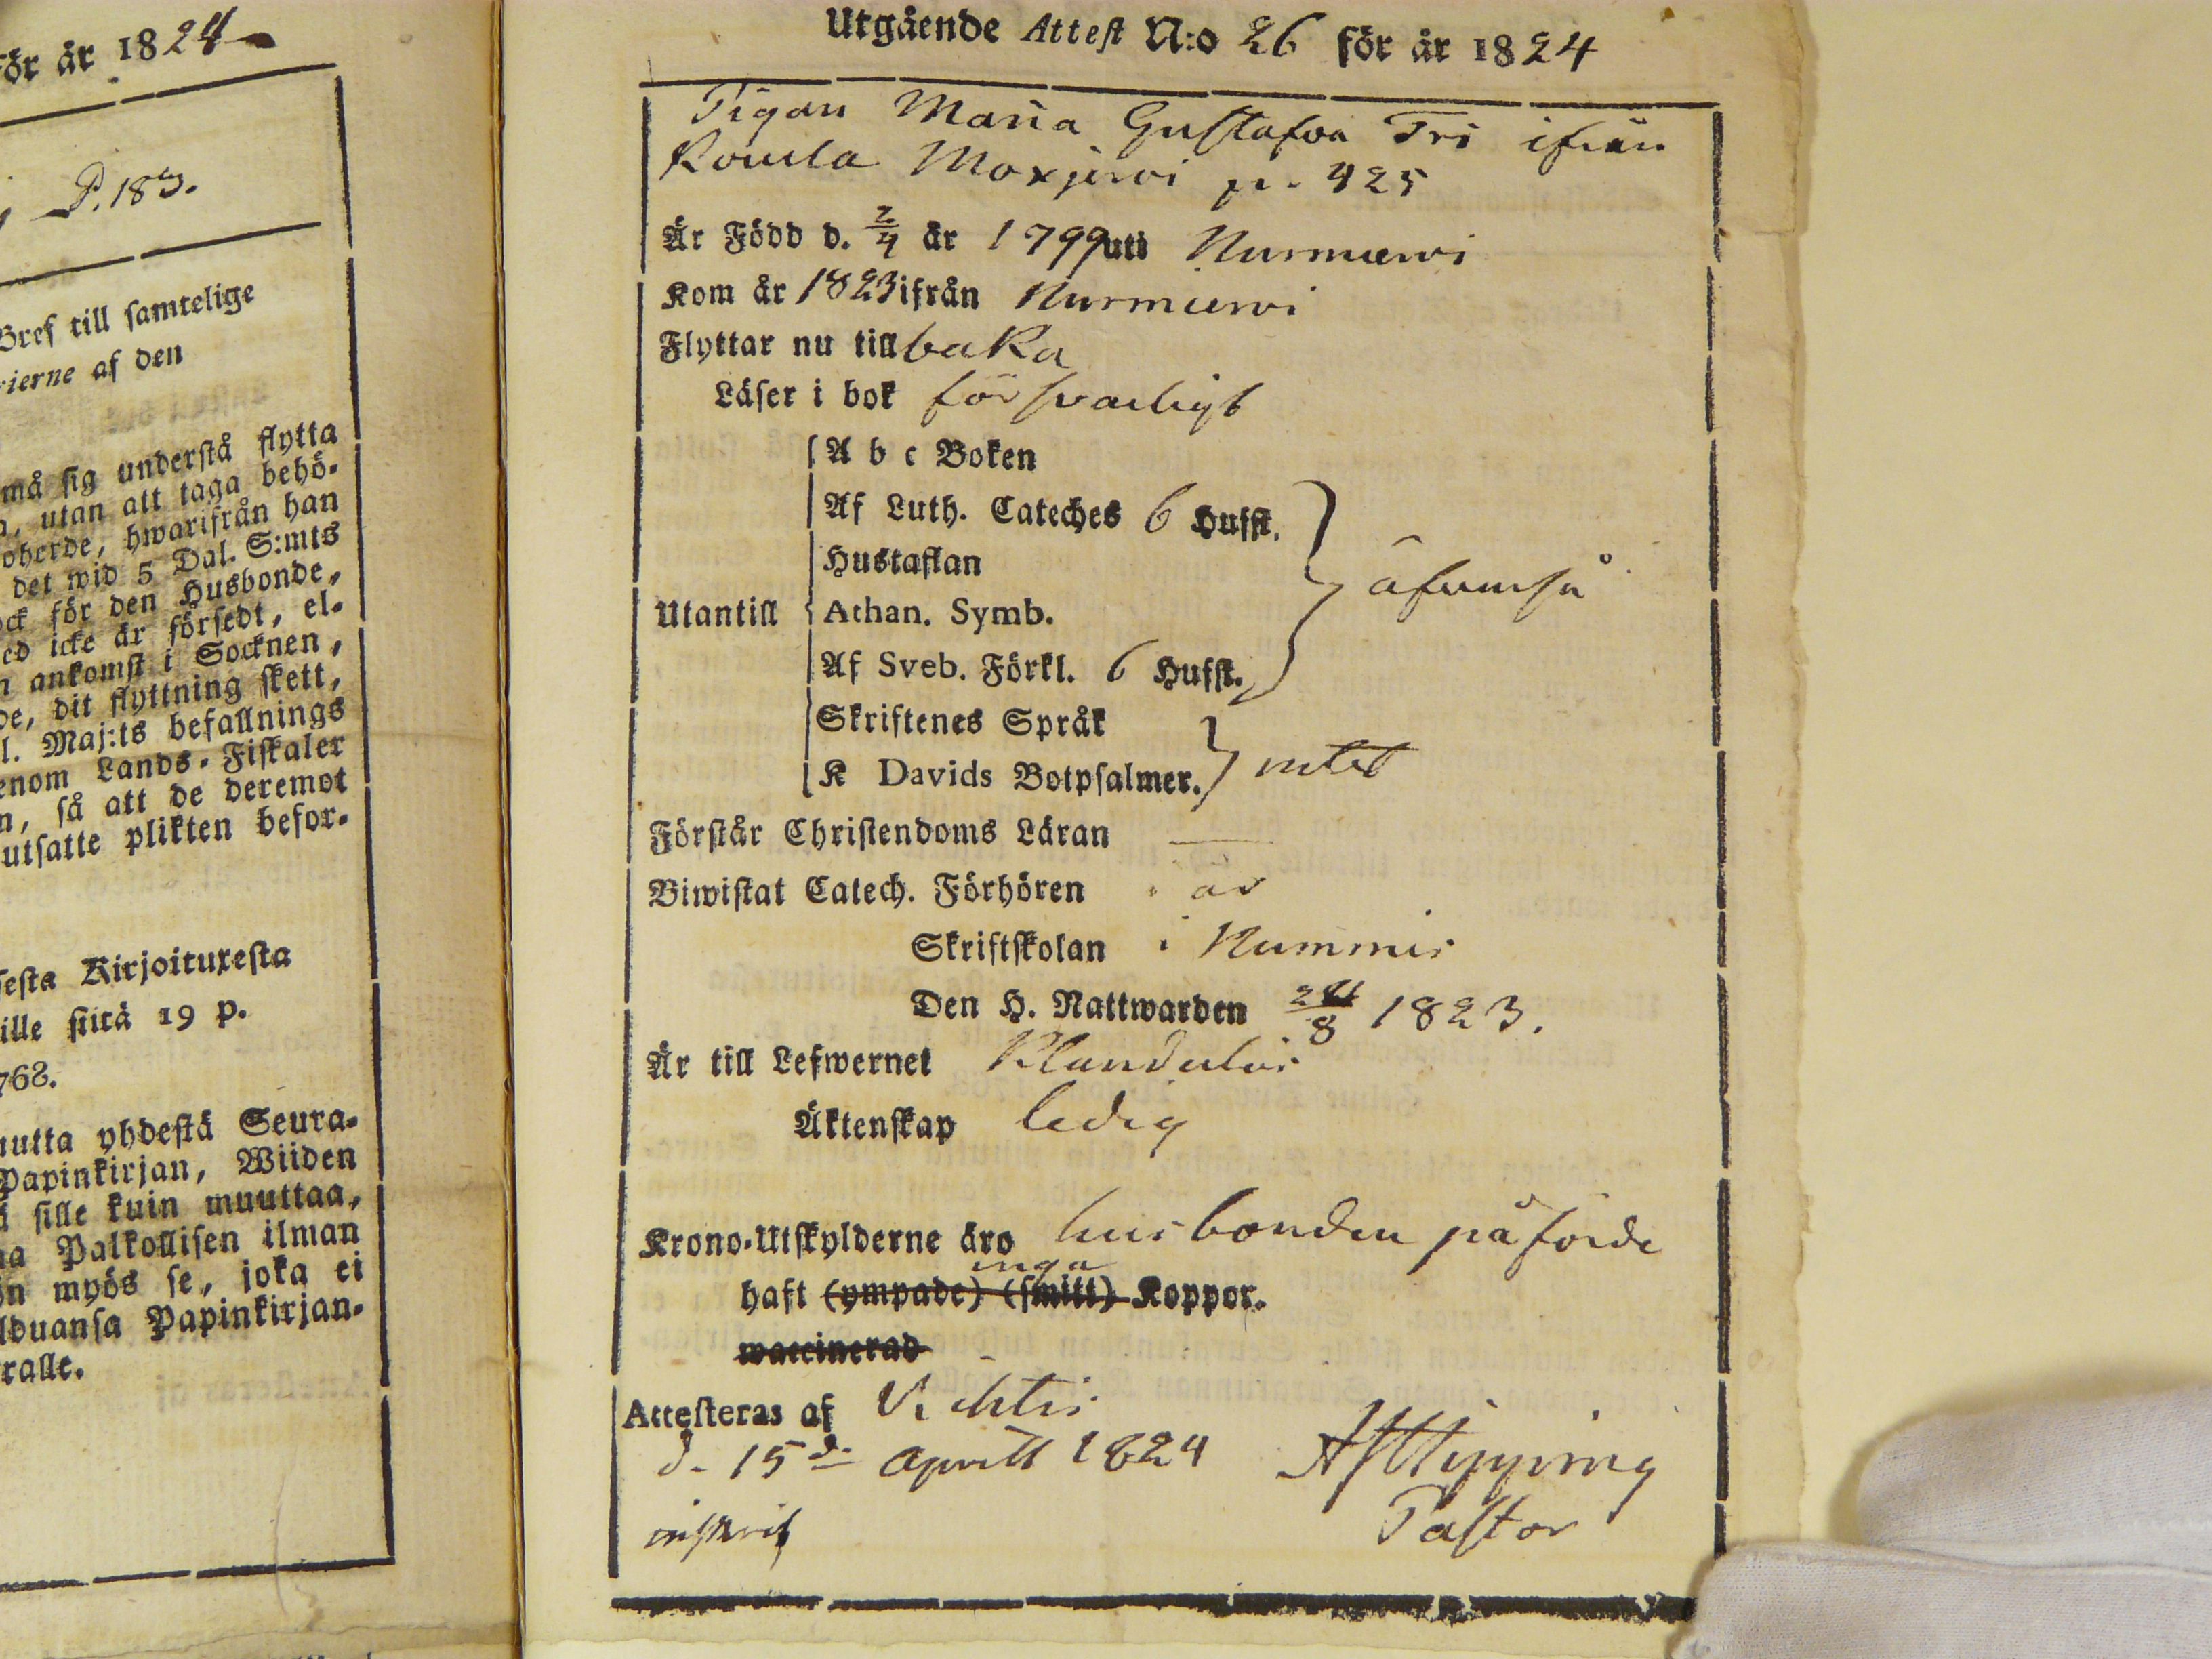 för år 1824
P. 183.
Bref till samtelige
rierne af den
må sig understå flytta
a, utan att taga behö-
oherde, hwarifrån han
det wid 5 Dal. S:mts
ock för den Husbonde,
ed icke är försedt, el-
n ankomst i Socknen,
de, dit flyttning skett,
l. Maj:ts befallnings
enom Lands-Fiskaler
n, så att de deremot
utsatte plikten befor-
sesta Kirjoituxesta
ille siitä 19 p.
768.
uutta yhdestä Seura-
Papinkirjan, Wiiden
ä sille kuin muuttaa,
na Palkollisen ilman
in myös se, joka ei
lduansa Papinkirjan-
ralle.
Utgående Attest N:o 26 för år 1824
Pigan Maria Gustafva Tri ifrån
Rouvla Moxjerwi p. 425
Är Född d. 2/4 år 1799 uti Nurmierwi
Kom år 1823 ifrån Nurmierwi
Flyttar nu till baka
Läser i bok försvarligt
A b c Boken
Af Luth. Cateches 6 Hufst.
Hustaflan
äfvenså
Utantill Athan. Symb.
Af Sveb. Förkl. 6 Hufst.
Skriftenes Språk
K Davids Botpsalmer. intet
Förstår Christendoms Läran —
Biwistat Catech. Förhören i år
Skriftskolan i Nummis
Den H. Nattwarden 24/8 1823.
Är till Lefwernet Klanderlös
Äktenskap ledig
Krono-Utskylderne äro husbonden påförde
inga
haft (ympade) (smitt) Koppor.
waccinerad
Attesteras af Vichtis
d. 15de April 1824 AJ Hipping
Pastor